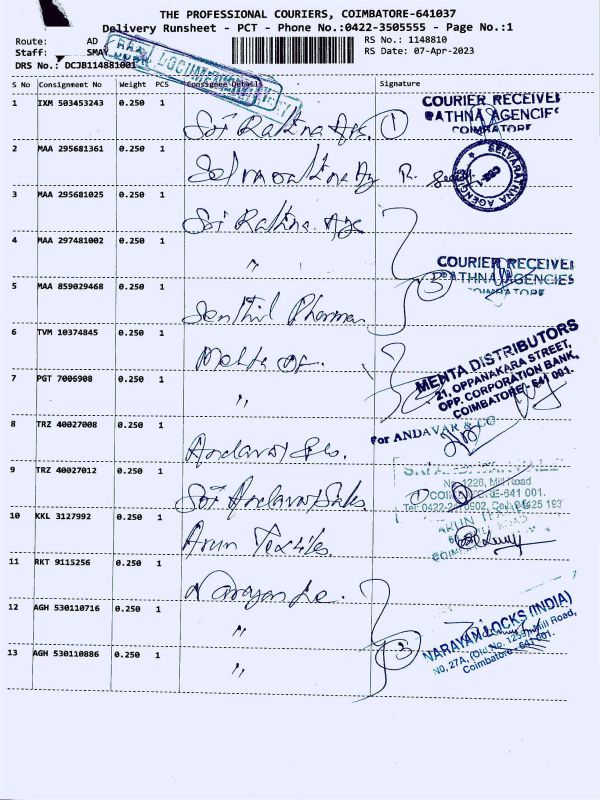 THE PROFESSIONAL COURIERS, COIMBATORE-641037
Delivery Runsheet - PCT - Phone No.:0422-3505555 - Page No.:1
Route: AD
RS No.: 1148810
Staff: SMA
RS Date: 07-Apr-2023
DRS No.: DCJB114881001
S No Consignment No Weight PCS Consignee Details Signature
1 IXM 503453243 0.250 1 Sri Rathna Ags. 1
COURIER RECEIVE
RATHNA AGENCIES
COIMBATORE
2 MAA 295681361 0.250 1
SELVARATHNA AGENCIES
3 MAA 295681025 0.250 1 Sri Rathna Ags
4 MAA 297481002 0.250 1 "
COURIER RECEIVE
RATHNA AGENCIES
COIMBATORE
3
5 MAA 859029468 0.250 1 Senthil Pharma
6 TVM 10374845 0.250 1 Mehta
MEHTA DISTRIBUTORS
21, OPPANAKARA STREET,
OPP. CORPORATION BANK,
COIMBATORE - 641 001.
7 PGT 7006908 0.250 1 "
8 TRZ 40027008 0.250 1 Andavar
For ANDAVAR & CO
9 TRZ 40027012 0.250 1 Sri Andavar Sales
No. 1226, Mill Road
COIMBATORE-641 001.
10 KKL 3127992 0.250 1 Arun Textiles.
ARUN TEXTILES
11 RKT 9115256 0.250 1 Narayan
12 AGH 530110716 0.250 1 "
NARAYAN LOCKS (INDIA)
NO, 27A, (Old No. Mill Road,
Coimbatore - 641 001.
3
13 AGH 530110886 0.250 1 "